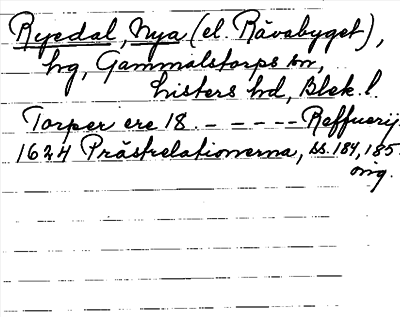 Ryedal, Nya (el. Rävabyget),
hg, Gammalstorps sn,
Listers hd, Blek. l.
Torper ere 18. – – – – – Reffuerij.
1624 Prästrelationerna, ss. 184, 185
orig.